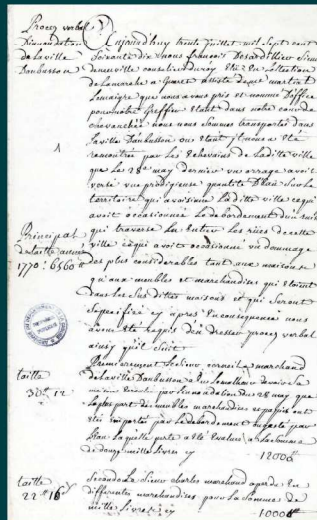 Procez verbal
D'innondation
de la ville
Daubusson
1
Principal
de taille année
1770 : 6560#
taille
30# 12
taille
22# 16
Aujourdhuy trente juillet mil sept cent
soixante dix nous françois Desardilliers sieur
deneuville conseiller du roy élu en l'élection
de Lamarche a Gueret assisté de me martin
Lemaigre que nous avons pris et nommé D'office
pour notre Greffier etant dans notre cours de
chevauchée nous nous sommes transportés dans
la ville Daubusson ou etant il nous a été
remontré par les Echevins de laditte ville
que le 28e may dernier un orage avoit
versé une prodigieuse quantité D'eau sur le
territoire qui avoisine la ditte ville ce qui
avoit occasionné le debordement du
qui traverse en Entier les rües de cette
ville ce qui avoit occasionné un dommage
des plus considerables tant aux maisons
qu'aux meubles et marchandises qui etoient
dans les sus dittes maisons et qui seront
specifiés cy apres En consequence nous
avons été requis d'en dresser procez verbal
ainsy qu'il suit
Premierement le sieur corneil marchand
de la ville Daubusson a
par l'innondation du 28 may que
la plus part des meubles marchandises et papiers ont
été emportés par le debordement
Eau laquelle perte a été Evaluée a la somme
de douze mille livres cy
12000#
Secondo Le Sieur charles marchand a perdu En
differentes marchandises pour la somme de
mille livres cy
1000#